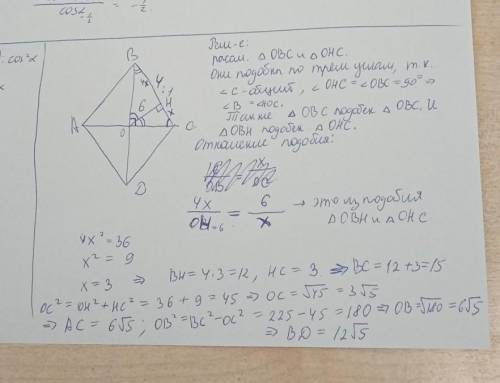 cos²x
B
4x
4:1
H
x
6
A
O
C
D
Рим-е:
посм. △OBC и △OHC.
Они подобны по трем углам, т.к.
∠C-общий, ∠OHC = ∠OBC = 90° ⇒
∠B = ∠HOC.
Также △OBC подобен △OBC. И
△OBH подобен △OHC.
Отношение подобия:
4x/OH=6 = 6/x → это из подобия
△OBH и △OHC
4x² = 36
x² = 9
x = 3 ⇒ BH = 4·3 = 12, HC = 3 ⇒ BC = 12+3 = 15
OC² = OH² + HC² = 36 + 9 = 45 ⇒ OC = √45 = 3√5
⇒ AC = 6√5; OB² = BC² - OC² = 225 - 45 = 180 ⇒ OB = √180 = 6√5
⇒ BD = 12√5